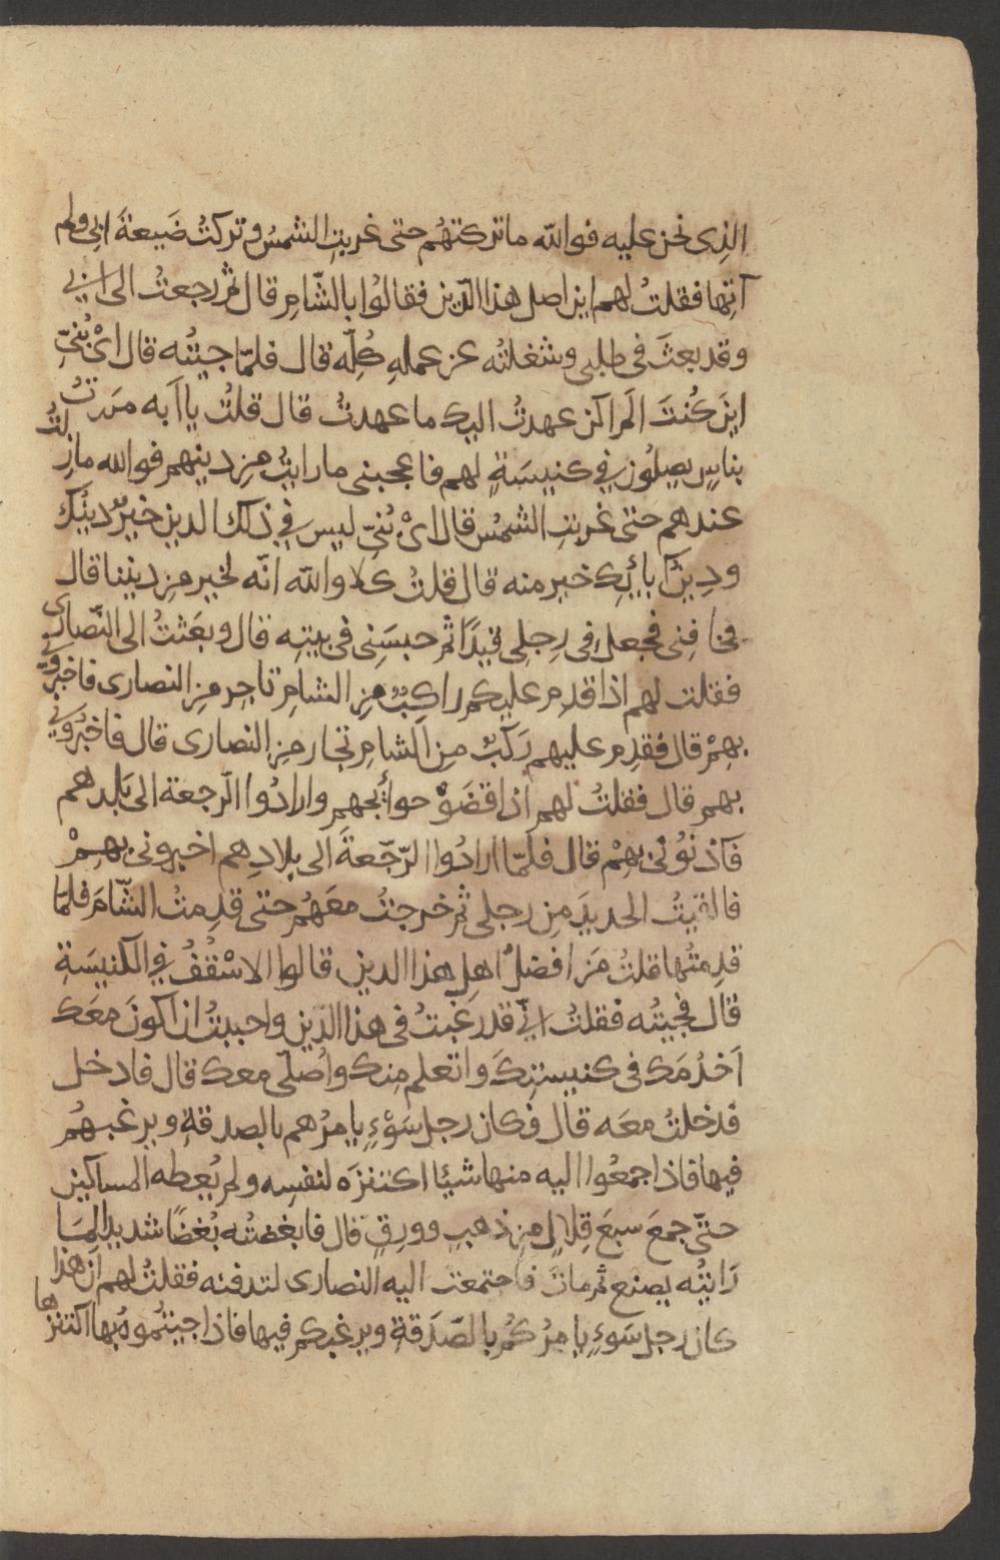 الذِى نحن عليه فوالله ما تركتهُم حتى غربتِ الشمسُ وتركتُ ضَيعةَ ابى ولم
آتِها فقلتُ لهم اين اصل هذا الدّين فقالُوا بالشّام قال ثم رجعتُ الى ابى
وقد بعثَ فى طلبى وشغلتُه عن عملهِ كُلِّه قال فلمّا جيتُه قال اىْ بُنىّ
اينَ كُنتَ الَم اكن عهدتُ اليك ما عهدتُ قال قلتُ يا اَبه مَررتُ
بناسٍ يصلُون فى كنيسَةٍ لهم فاعجبنى ما رايتُ من دينهم فوالله مازِلتُ
عندهم حتى غربتِ الشمسُ قال اىْ بُنىّ ليس فى ذلك الدين خيرٌ دينُك
ودِينُ آبائِك خير منه قال قلتُ كلا والله انّه لخير من ديننا قال
فخافنِى فجعل فى رِجلِى قيدًا ثم حبسَنِى فى بيتِه قال وبعَثتُ الى النّصارى
فقلت لهم اذا قدِم عليكم راكبٌ مِن الشامِ تاجِر مِن النصارى فاخبرونى
بهِمْ قال فقدِم عليهم رَكبٌ مِن الشامِ تجار مِن النصارى قال فاخبُرونى
بهم قال فقلتُ لهم اذا قضَوْا حوائجهم وارادُوا الرّجعة الى بَلدهم
فآذنُونى بهِمْ قال فلمّا ارادُوا الرّجعةَ الى بلادِهم اخبرونى بهِمْ
فالقيتُ الحديدَ مِن رجلى ثم خرجتُ معَهُم حتى قدِمتُ الشّامَ فلمّا
قدِمتُها قلتُ مَن افضلُ اهلِ هذا الدين قالوا الاسْقُفُ فى الكنيسَةِ
قال فجيتُه فقلتُ انى قد رغبتُ فى هذا الدّين واحببتُ ان اكونَ معَك
اَخدُمَك فى كنيستِكَ واتعلم مِنك واُصلّى معك قال فادخل
فدخلتُ معَه قال فكان رجل سَوْءٍ يامرُهم بالصدقةِ ويرغبهُم
فيها فاذا جمعُوا اليه منها شيئا اكتنزَه لنفسِه ولم يُعطه المساكين
حتّى جمعَ سبعَ قِلالٍ من ذهبٍ وورِقٍ قال فابغضتُه بُغضًا شديدا لِمَا
رَايتُه يصنع ثم ماتَ فاجتمعت اليه النصارى لتدفنه فقلتُ لهم ان هذا
كان رجل سَوءٍ يامرُكُم بالصّدَقةِ ويرغبكم فيها فاذا جيتُموهُ بها اكتنزها